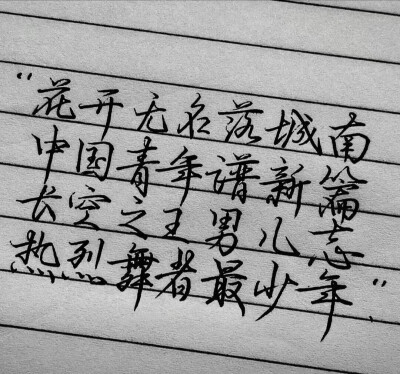 “花开无名落城南
中国青年谱新篇
长空之王男儿志
热烈舞者最少年”